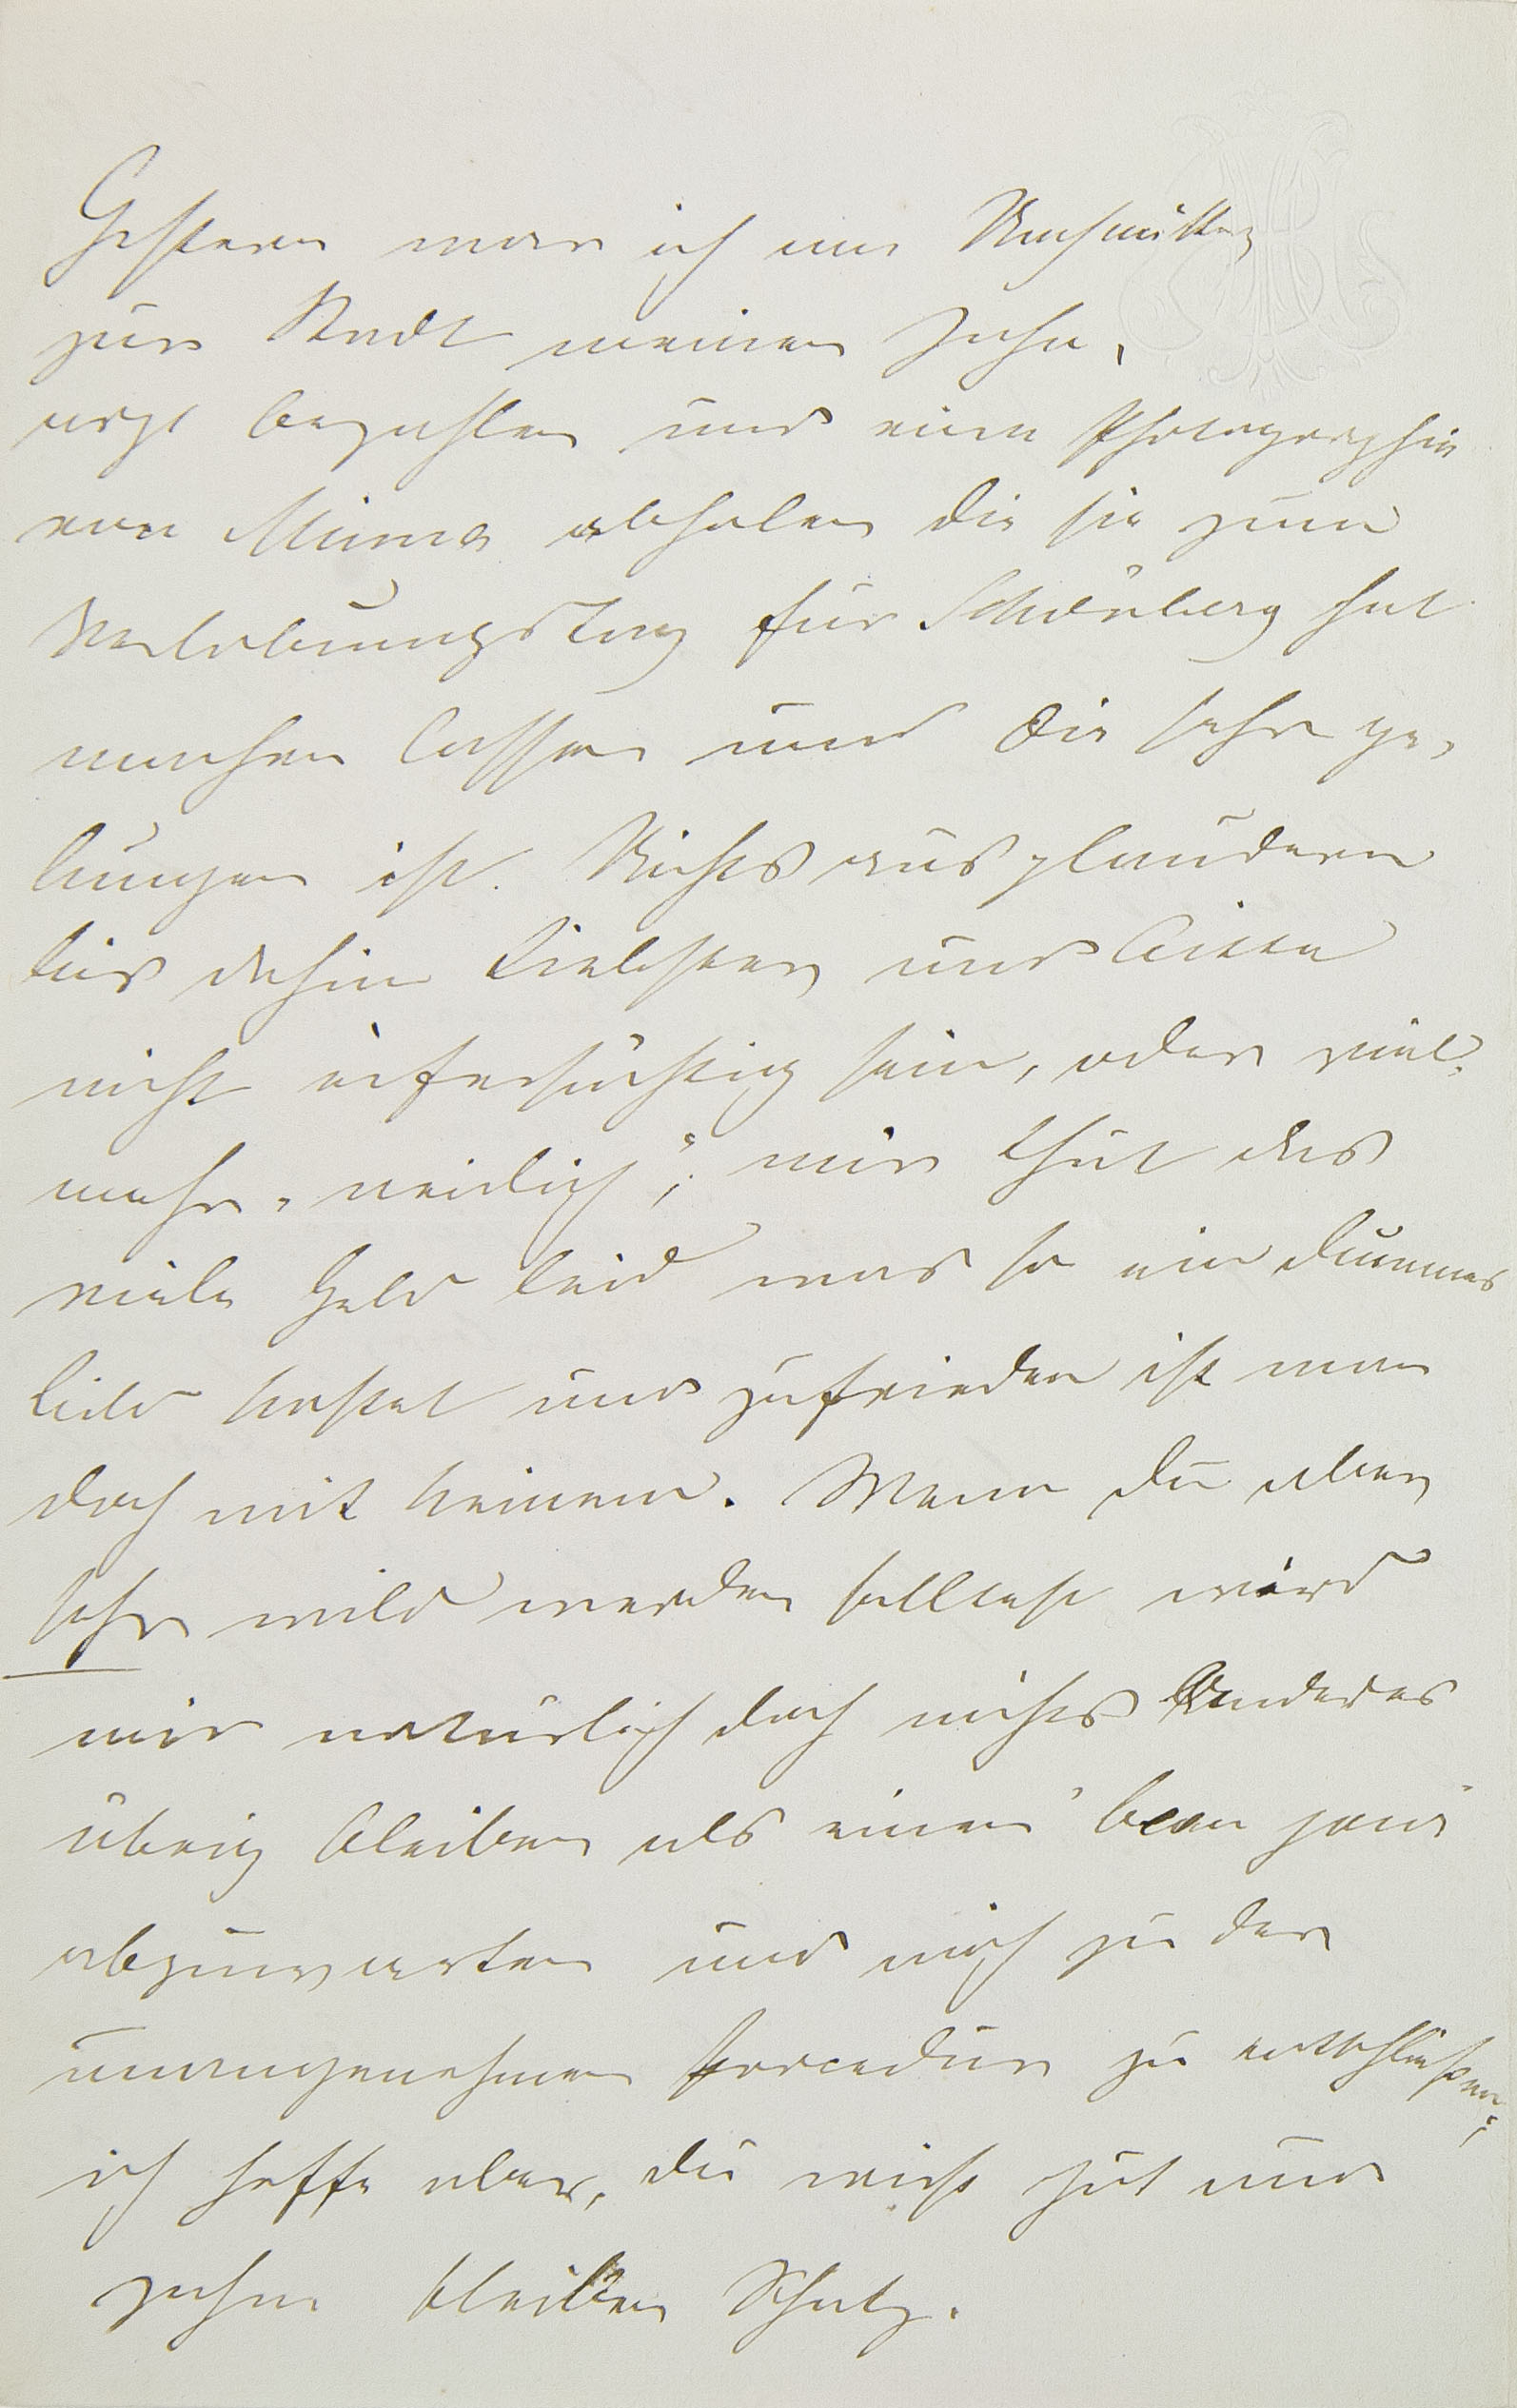 Gestern war ich am Nachmittag
zur Stadt meinen Zahn-
arzt bezahlen und eine Photographie
von Minna abholen die sie zum
Verlobungstag für Schönberg hat
machen lassen und die sehr ge-
lungen ist. Nichts ausplaudern
bis dahin Liebster, und bitte
nicht eifersüchtig sein, oder viel-
mehr „neidisch“; mir thut das
viele Geld leid was so ein dummes
Bild kostet und zufrieden ist man
doch mit keinem. Wenn du aber
sehr wild werden solltest wird
mir natürlich doch nichts Anderes
übrig bleiben als einen beau jour
abzuwarten und mich zu der
unangenehmen Procedur zu entschließen;
ich hoffe aber, du wirst gut und
zahm bleiben Schatz.